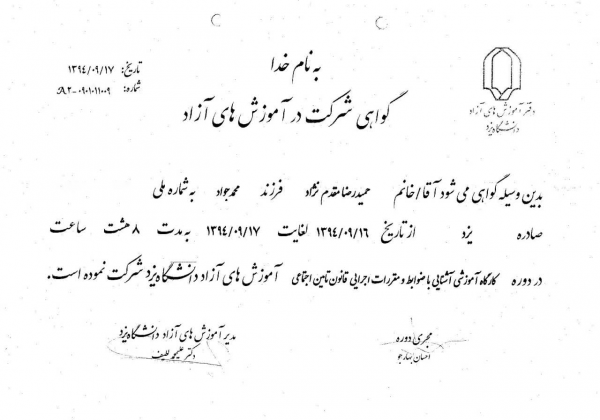 به نام خدا
تاریخ: ۱۳۹۴/۰۹/۱۷
شماره: A۲-۰۹۰۱۰۱۱۰۰۹
دفتر آموزش های آزاد
دانشگاه یزد
گواهی شرکت در آموزش های آزاد
بدین وسیله گواهی می شود آقا/خانم حمیدرضا مقدم نژاد فرزند محمدجواد به شماره ملی
صادره یزد از تاریخ ۱۳۹۴/۰۹/۱۶ لغایت ۱۳۹۴/۰۹/۱۷ به مدت ۸ هشت ساعت
در دوره کارگاه آموزشی آشنایی با ضوابط و مقررات اجرایی قانون تامین اجتماعی آموزش های آزاد دانشگاه یزد شرکت نموده است.
مجری دوره
احسان بهارجو
مدیر آموزش های آزاد دانشگاه یزد
دکتر علیمحمد لطیف